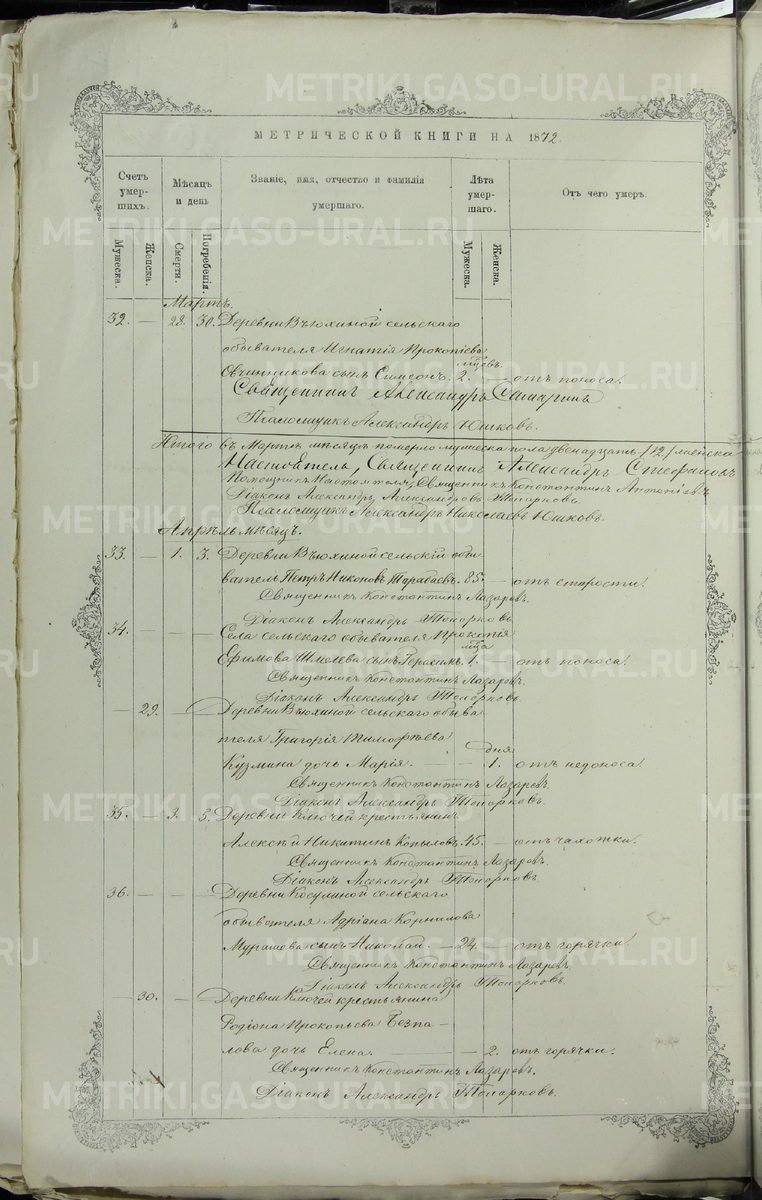 METRIKI.GASO-URAL.RU
МЕТРИЧЕСКОЙ КНИГИ НА 1872.
Счетъ умер-шихъ.
Мѣсяцъ и день
Званіе, имя, отчество и фамилія умершаго.
Лѣта умер-шаго.
Отъ чего умеръ.
Мужеска.
Женска.
Смерти.
Погребенія.
Мужеска.
Женска.
Мартъ.
32. — 28. 30. Деревни Вьюхиной сельскаго
обывателя Игнатія Прокопіева
мцовъ.
Овчинникова сынъ Симеонъ. 2. — отъ поноса.
Священникъ Александръ
Псаломщикъ Александръ Юшковъ.
Итого въ Мартѣ мѣсяцѣ померло мужеска пола двенадцать /12/ женска
Настоятель, Священникъ Александръ Стефановъ
Помощникъ Настоятеля, Священникъ Константинъ Антоніевъ
Діаконъ Александръ Александровъ Топорковъ.
Псаломщикъ Александръ Николаевъ Юшковъ.
Апрѣль мѣсяцъ.
33. — 1. 3. Деревни Вьюхиной сельскій обы
ватель Петръ Никоновъ Тарабаевъ. 85. — отъ старости.
Священникъ Константинъ Лазаревъ.
Діаконъ Александръ Топорковъ
34. — — — Села сельскаго обывателя Прокопія
мца
Ефимова Шмелева сынъ Герасимъ. 1. — отъ поноса.
Священникъ Константинъ Лазаревъ.
Діаконъ Александръ Топорковъ.
— 29. — — Деревни Вьюхиной сельскаго обыва
теля Григорія Тимофѣева
дня
Кузмина дочь Марія. — — 1. отъ недоноса.
Священникъ Константинъ Лазаревъ.
Діаконъ Александръ Топорковъ.
35. — 3. 5. Деревни Ключей крестьянинъ
Алексѣй Никитинъ Копыловъ. 45. — отъ чахотки.
Священникъ Константинъ Лазаревъ.
Діаконъ Александръ Топорковъ
36. — — — Деревни Косулиной сельскаго
обывателя Адріана Корнилова
Мурашева сынъ Николай. — 24. — отъ горячки.
Священникъ Константинъ Лазаревъ
Діаконъ Александръ Топорковъ.
— 30. — — Деревни Ключей крестьянина
Родіона Прокопьева Безпа
лова дочь Елена. — — 2. отъ горячки.
Священникъ Константинъ Лазаревъ.
Діаконъ Александръ Топорковъ.